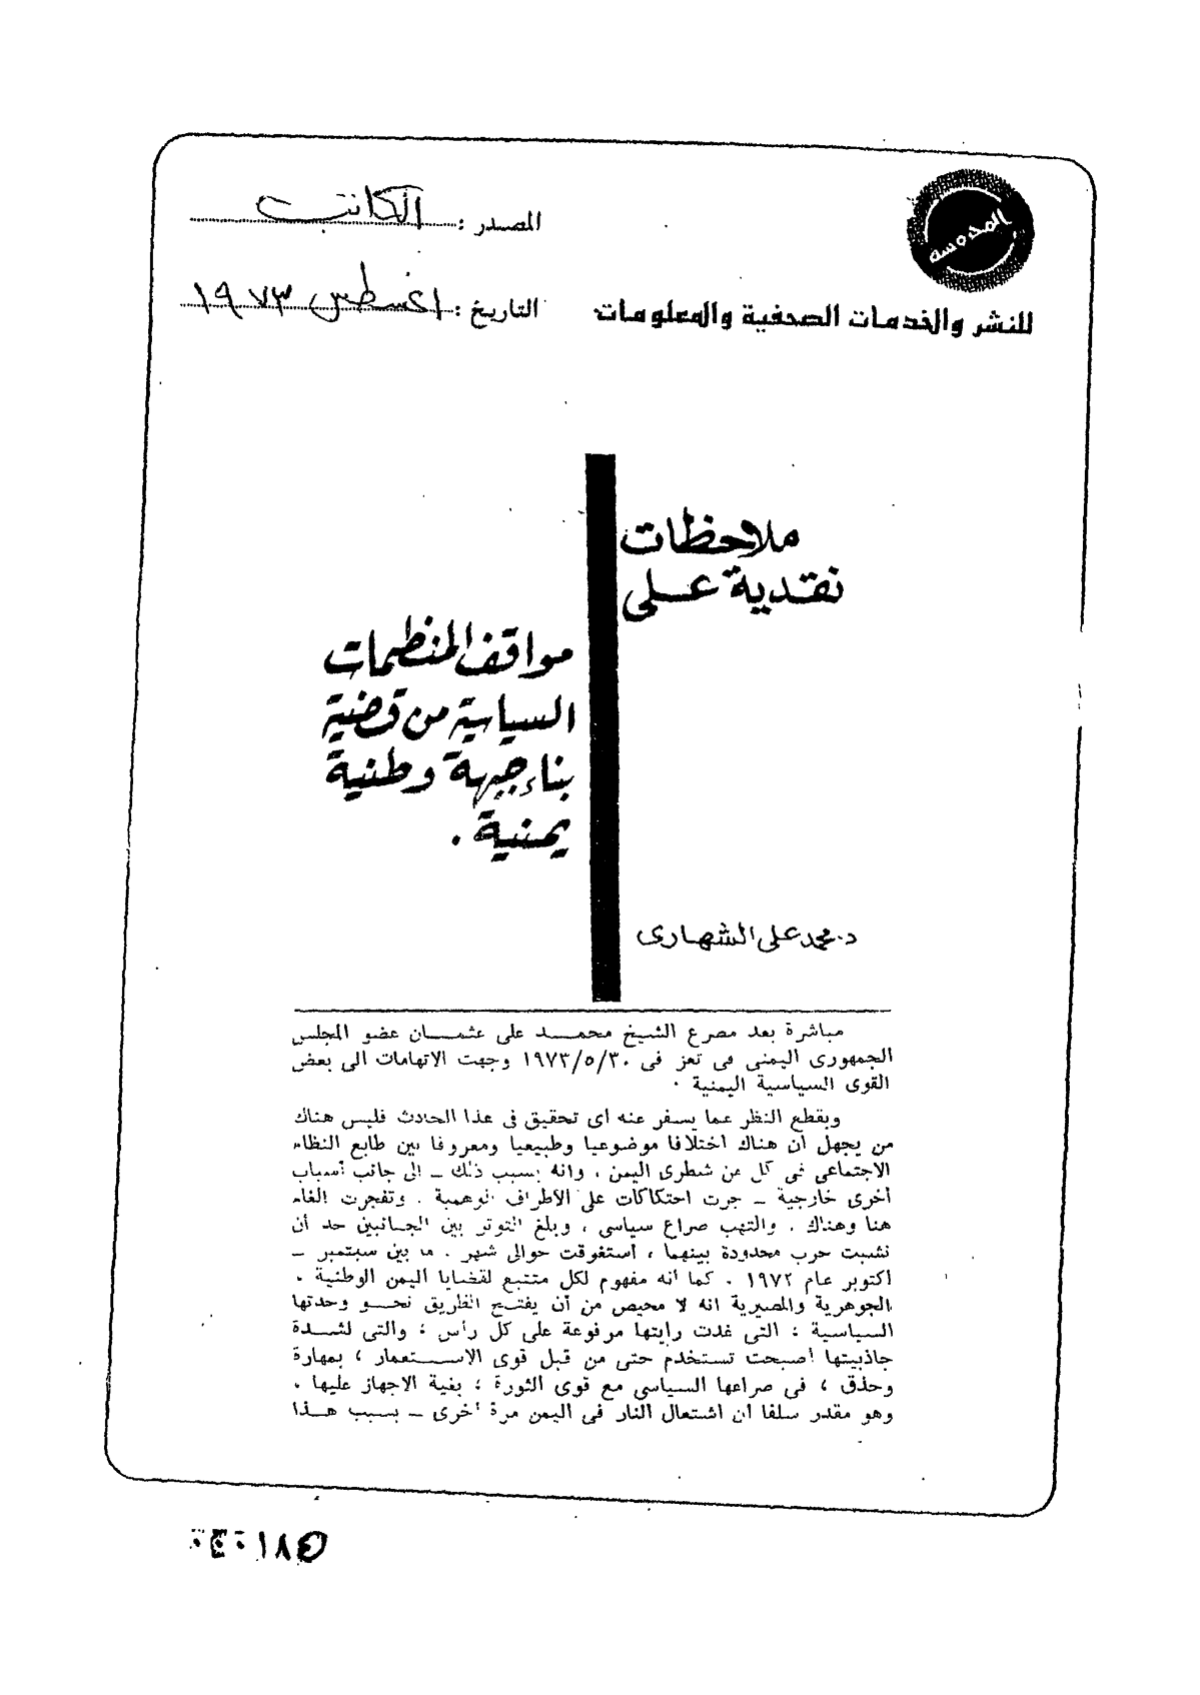 المحروسة
للنشر والخدمات الصحفية والمعلومات
المصدر : الكاتب
التاريخ : اغسطس ١٩٧٣
ملاحظات
نقدية على
مواقف المنظمات
السياسية من قضية
بناء جبهة وطنية
يمنية .
د. محمد على الشهارى
مباشرة بعد مصرع الشيخ محمد على عثمان عضو المجلس
الجمهورى اليمنى فى تعز فى ١٩٧٣/٥/٣٠ وجهت الاتهامات الى بعض
القوى السياسية اليمنية .
وبقطع النظر عما يسفر عنه اى تحقيق فى هذا الحادث فليس هناك
من يجهل ان هناك اختلافا موضوعيا وطبيعيا ومعروفا بين طابع النظام
الاجتماعى فى كل من شطرى اليمن ، وانه بسبب ذلك ـ الى جانب أسباب
أخرى خارجية ـ جرت احتكاكات على الأطراف الوهمية . وتفجرت الغام
هنا وهناك . والتهب صراع سياسى ، وبلغ التوتر بين الجانبين حد أن
نشبت حرب محدودة بينهما ، استغرقت حوالى شهر . ما بين سبتمبر ـ
اكتوبر عام ١٩٧٢ . كما انه مفهوم لكل متتبع لقضايا اليمن الوطنية .
الجوهرية والمصيرية انه لا محيص من أن يفتح الطريق نحو وحدتها
السياسية ؛ التى غدت رايتها مرفوعة على كل رأس ؛ والتى لشدة
جاذبيتها أصبحت تستخدم حتى من قبل قوى الاستعمار ، بمهارة
وحذق ، فى صراعها السياسى مع قوى الثورة ؛ بغية الاجهاز عليها .
وهو مقدر سلفا ان اشتعال النار فى اليمن مرة أخرى ـ بسبب هذا